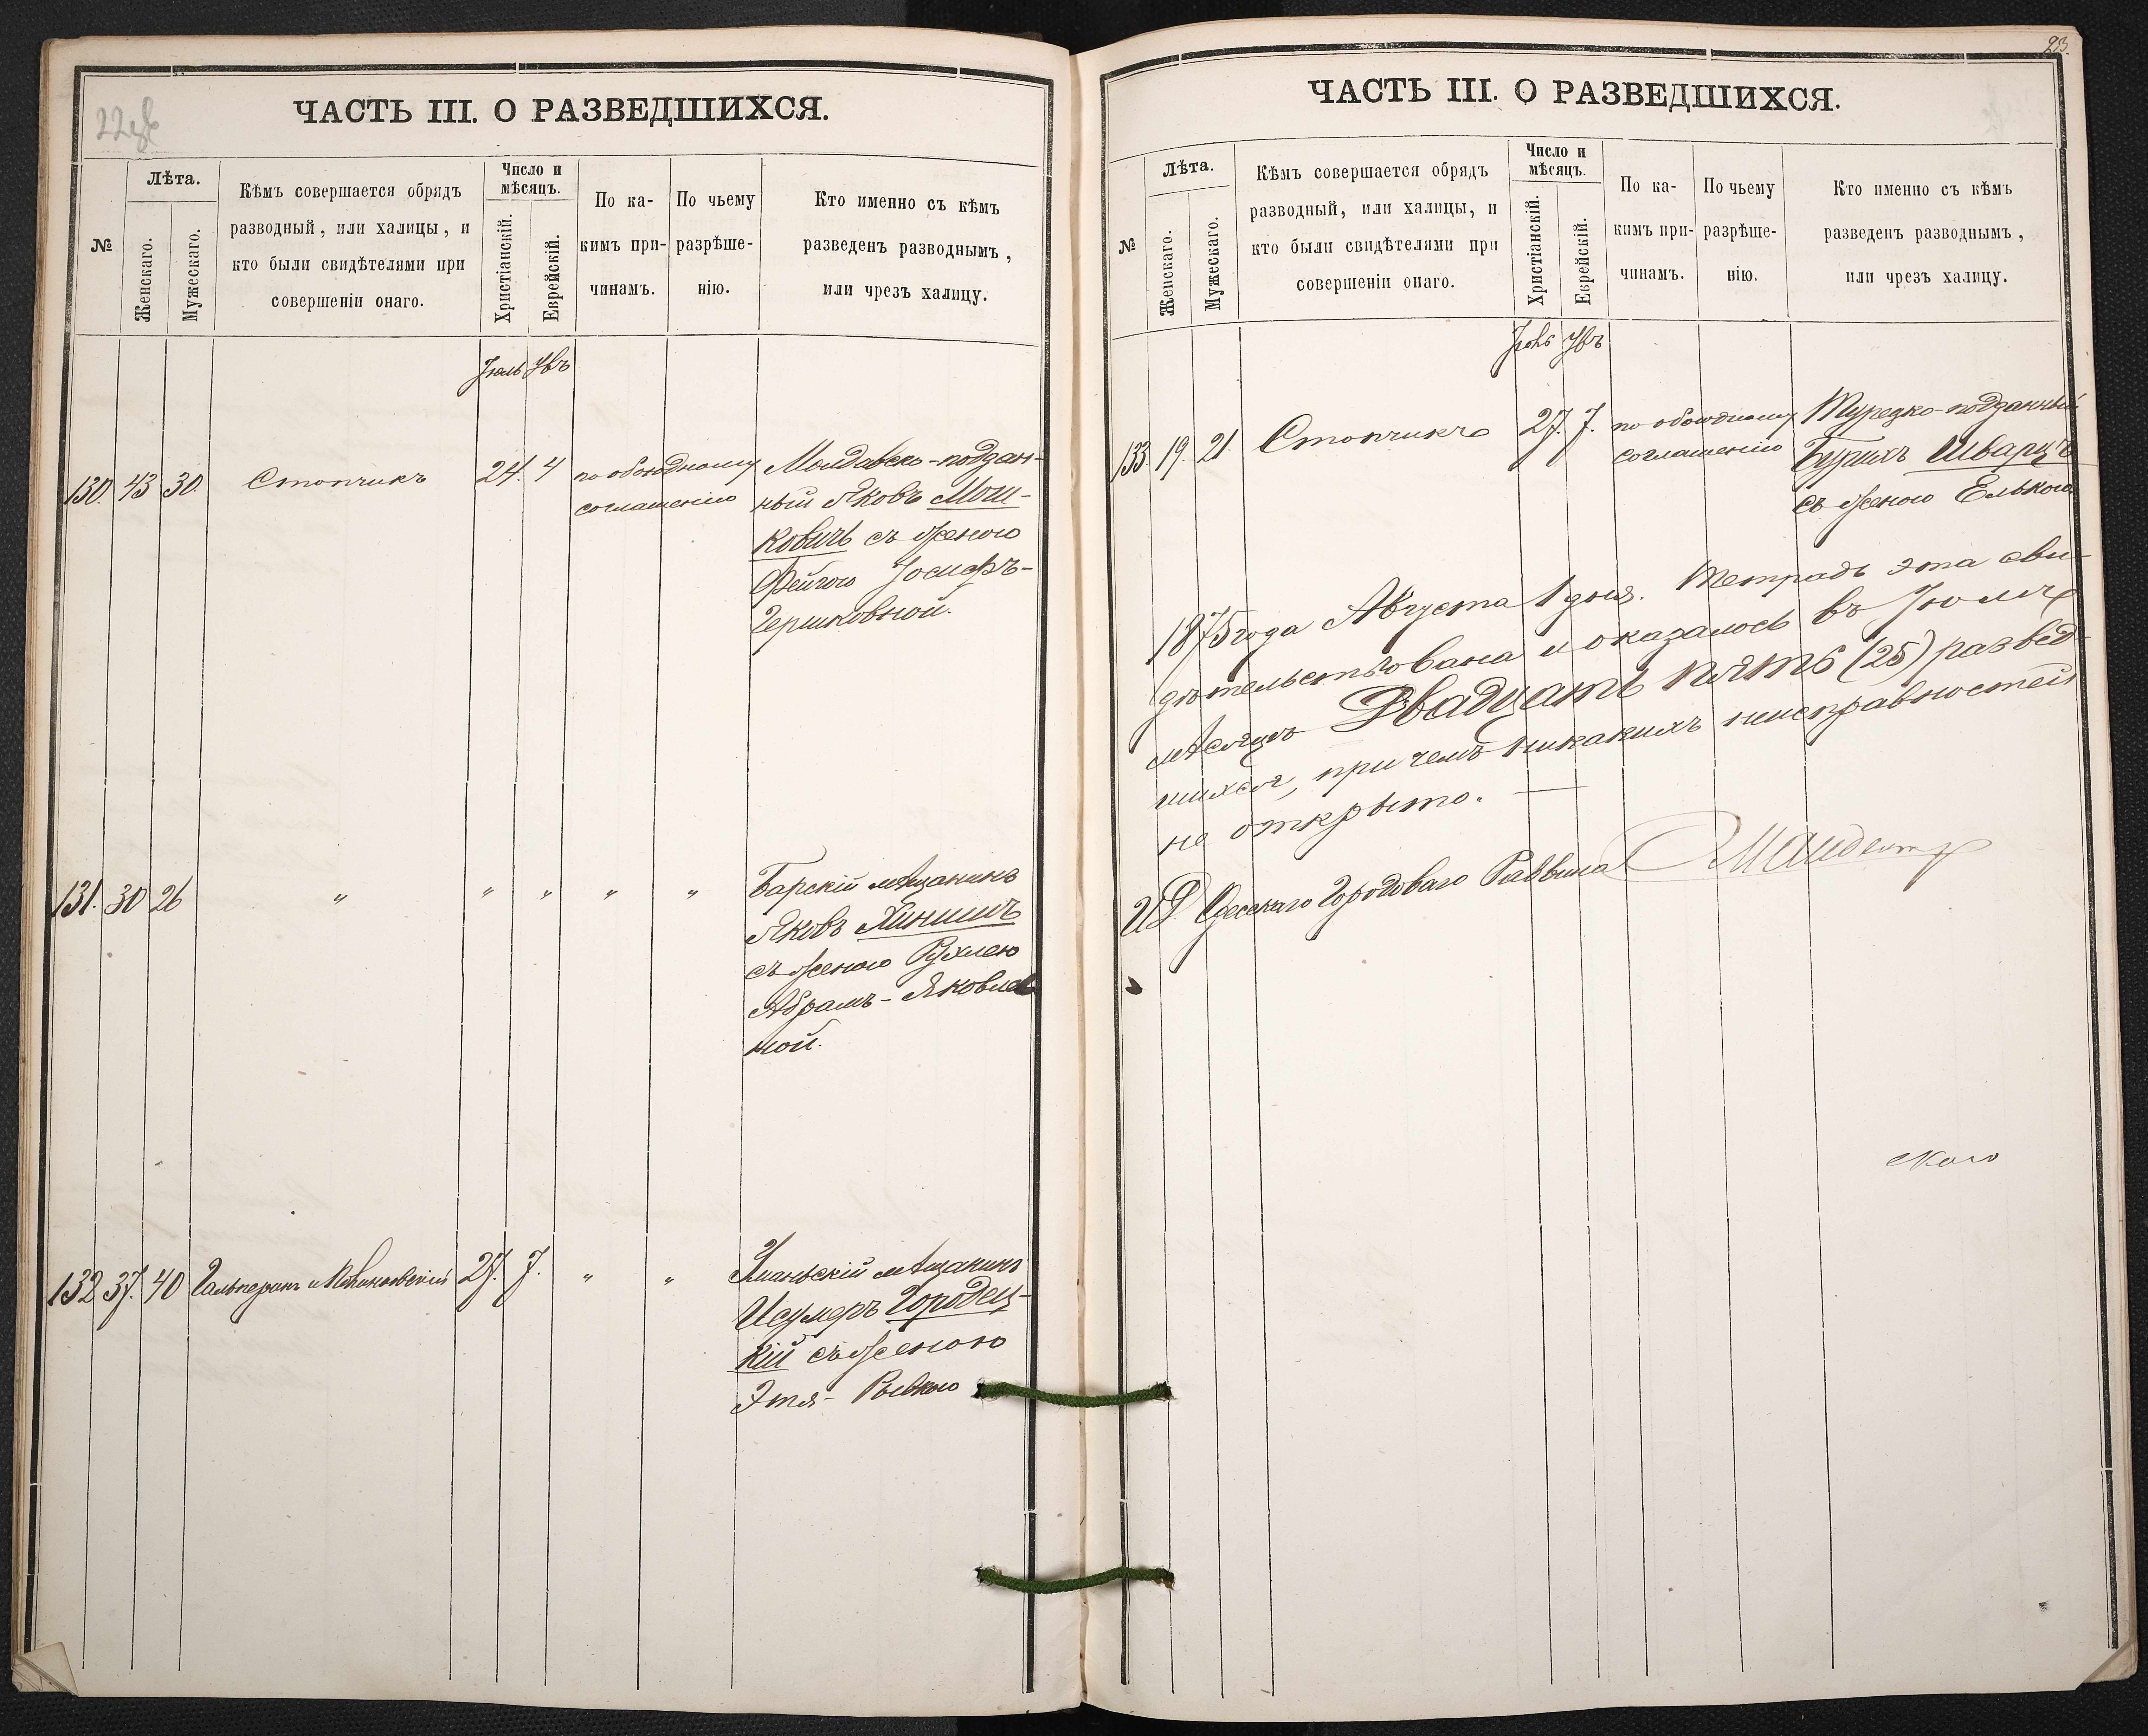 22 об
ЧАСТЬ III. О РАЗВЕДШИХСЯ.
№
Лѣта.
Женскаго.
Мужескаго.
Кѣмъ совершается обрядъ
разводный, или халицы, и
кто были свидѣтелями при
совершеніи онаго.
Число и
мѣсяцъ.
Христіанскій.
Еврейскій.
По ка-
кимъ при-
чинамъ.
По чьему
разрѣше-
нію.
Кто именно съ кѣмъ
разведенъ разводнымъ,
или чрезъ халицу.
Іюль Увъ
130. 43 30. Стопчикъ 24. 4 по обоюдному
соглашенію
Молдавско-поддан-
ный Яковъ Мош-
ковичъ съ женою
Фейгою Іосифъ-
Гершковной.
131. 30 26 " " " " " Барскій мѣщанинъ
Яковъ Хинишъ
съ женою Рухлею
Абрамъ-Яковлев
ной.
132 37. 40 Гальперинъ и 27. 7. " " Уманьскій мѣщанинъ
Городец-
кій съ женою
Этя-Рывкою
23.
ЧАСТЬ III. О РАЗВЕДШИХСЯ.
№
Лѣта.
Женскаго.
Мужескаго.
Кѣмъ совершается обрядъ
разводный, или халицы, и
кто были свидѣтелями при
совершеніи онаго.
Число и
мѣсяцъ.
Христіанскій.
Еврейскій.
По ка-
кимъ при-
чинамъ.
По чьему
разрѣше-
нію.
Кто именно съ кѣмъ
разведенъ разводнымъ,
или чрезъ халицу.
Іюль Увъ
133. 19. 21. Стопчикъ 27. 7. по обоюдному
соглашенію
Турецко-подданный
Берихъ Шварцъ
съ женою Елькою
1875 года Августа 1 дня. Тетрадь эта сви-
дѣтельствована и оказалось въ Іюлѣ
мѣсяцѣ Двадцать пять (25) развед-
шихся, при чемъ никакихъ неисправностей
не открыто. —
ИД. Одесскаго Городоваго Раввина